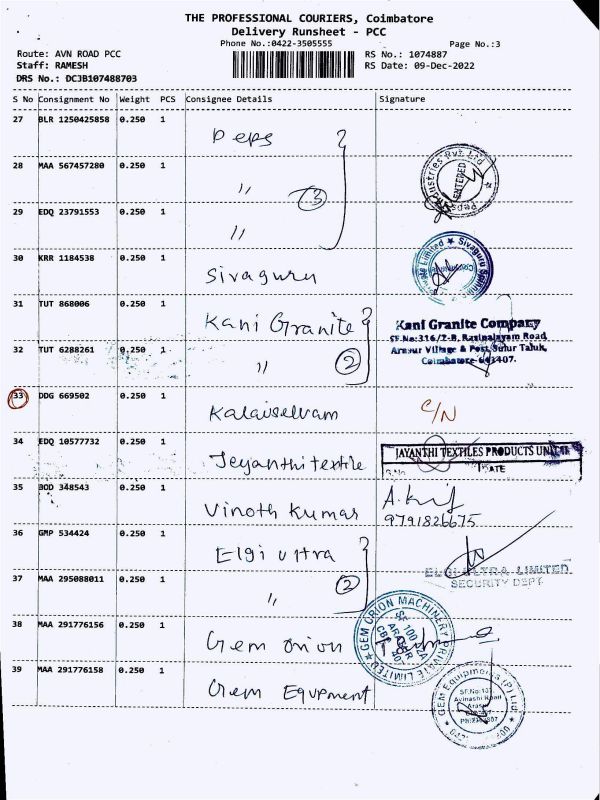 THE PROFESSIONAL COURIERS, Coimbatore
Delivery Runsheet - PCC
Phone No.:0422-3505555
Page No.:3
Route: AVN ROAD PCC
RS No.: 1074887
Staff: RAMESH
RS Date: 09-Dec-2022
DRS No.: DCJB107488703
S No Consignment No Weight PCS Consignee Details Signature
27 BLR 1250425858 0.250 1 Peps
28 MAA 567457280 0.250 1 〃 3
ENTERED
29 EDQ 23791553 0.250 1 〃
30 KRR 1184538 0.250 1 Sivaguru
31 TUT 868006 0.250 1 Kani Granite
Kani Granite Company
SF.No:316/2-B, Rasipalayam Road,
Arasur Village & Post, Sulur Taluk,
Coimbatore-641407.
32 TUT 6288261 0.250 1 〃 2
33 DDG 669502 0.250 1 Kalaiselvam C/N
34 EDQ 10577732 0.250 1 Jeyanthi textile
JAYANTHI TEXTILES PRODUCTS UNIT
DATE
35 BOD 348543 0.250 1 Vinoth Kumar
9791826675
36 GMP 534424 0.250 1 Elgi ultra
ELGI ULTRA LIMITED
SECURITY DEPT
37 MAA 295088011 0.250 1 〃 2
38 MAA 291776156 0.250 1 Gem orion
GEM ORION MACHINERY PRIVATE LIMITED
39 MAA 291776158 0.250 1 Gem Equpment
GEM Equipments (P) Ltd
Avinashi Road
Arasur